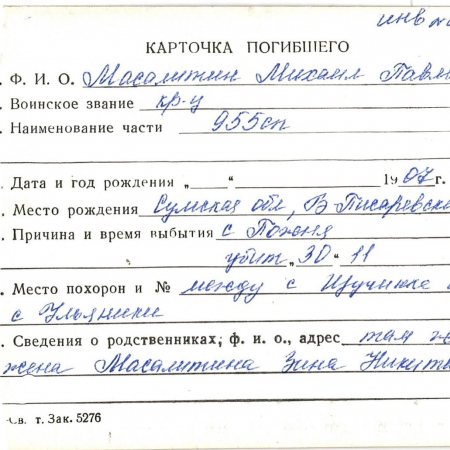 инв №
КАРТОЧКА ПОГИБШЕГО
. Ф. И. О. Масалитин Михаил Павл
. Воинское звание кр-ц
. Наименование части 955сп
. Дата и год рождения „ “ 1907 г.
. Место рождения Сумская обл, В Писаревск
. Причина и время выбытия с
убит „30 “ 11
. Место похорон и № между с Щучинка
с Ульяники
. Сведения о родственниках, ф. и. о., адрес там ж
жена Масалитина Зина Никит
Св. т. Зак. 5276